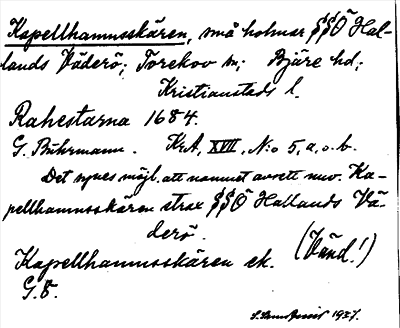 Kapellhamnsskären, små holmar §§Ö Hal-
lands Väderö; Torekov sn; Bjäre hd;
Kristianstads l.
Rahestarna 1684.
G. Buhrmann. KrA, XVII, N:o 5, a, o. b.
Det synes möjl. att namnet avsett nuv. Ka-
pellhamnsskären strax §§Ö Hallands Vä-
derö
(Vänd!)
Kapellhamnsskären ek.
G. 8.
1927.